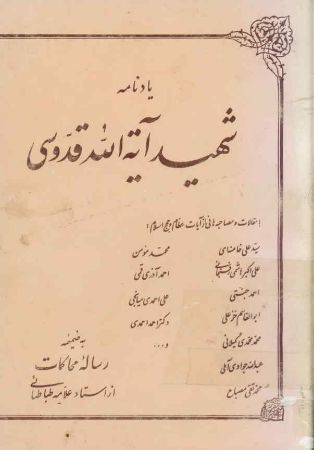 یادنامه
شهید آیة الله قدوسی
با مقالات و مصاحبه هائی از آیات عظام و حجج اسلام:
سید علی خامنه‌ای
علی اکبر هاشمی رفسنجانی
احمد جنتی
ابوالقاسم خزعلی
محمد محمدی گیلانی
عبدالله جوادی آملی
محمد تقی مصباح
محمد مؤمن
احمد آذری قمی
علی احمدی میانجی
دکتر احمد احمدی
و...
به ضمیمه
رسالهٔ محاکمات
از استاد علامه طباطبائی